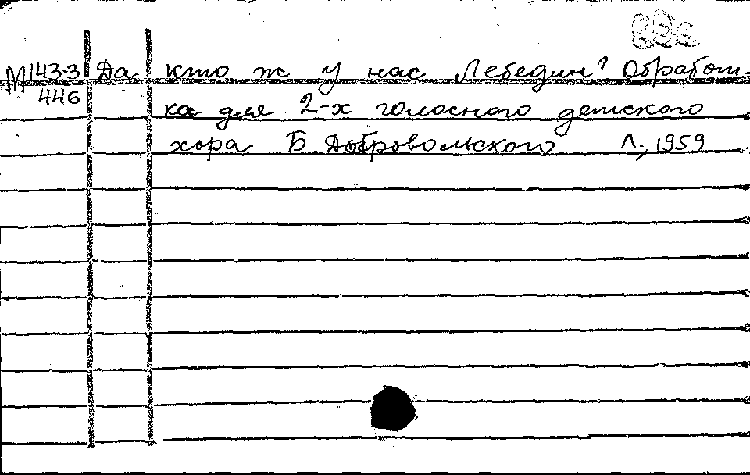 М 143-3 Да кто ж у нас Лебедин? Обработ-
446 ка для 2-х голосного детского
хора Б Добровольского Л., 1959